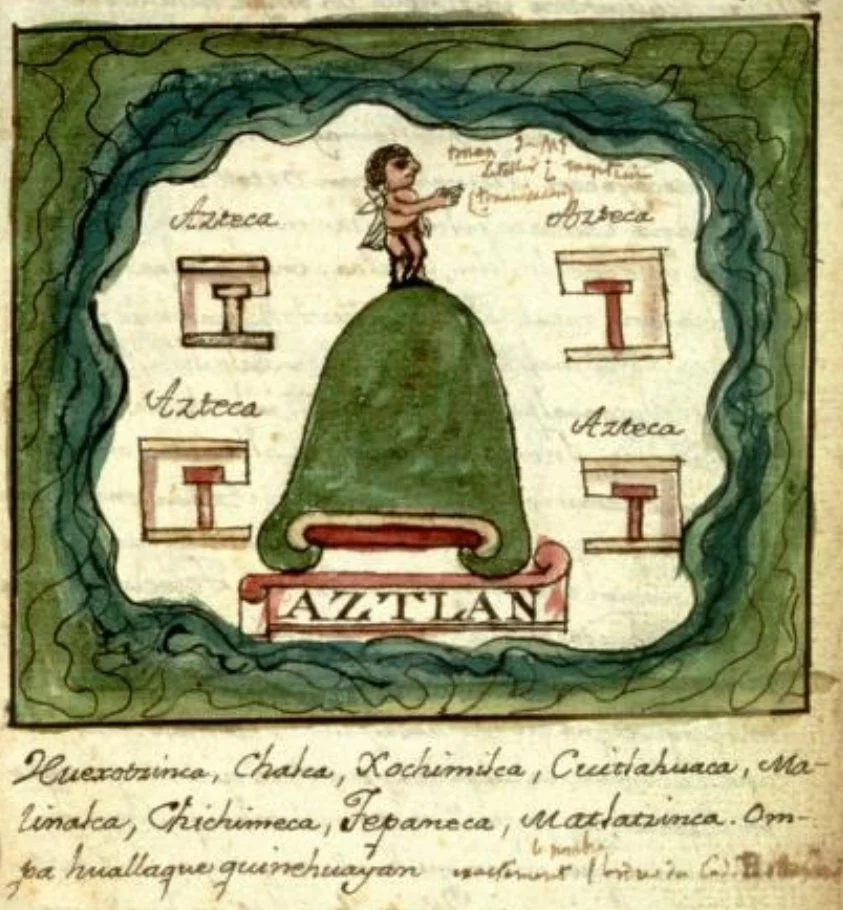 Azteca
Azteca
Azteca
Azteca
AZTLAN
Huexotzinca, Chalca, Xochimilca, Cuitlahuaca, Ma-
linalca, Chichimeca, Tepaneca, Matlatzinca. Om-
pa huallaque quinehuayan